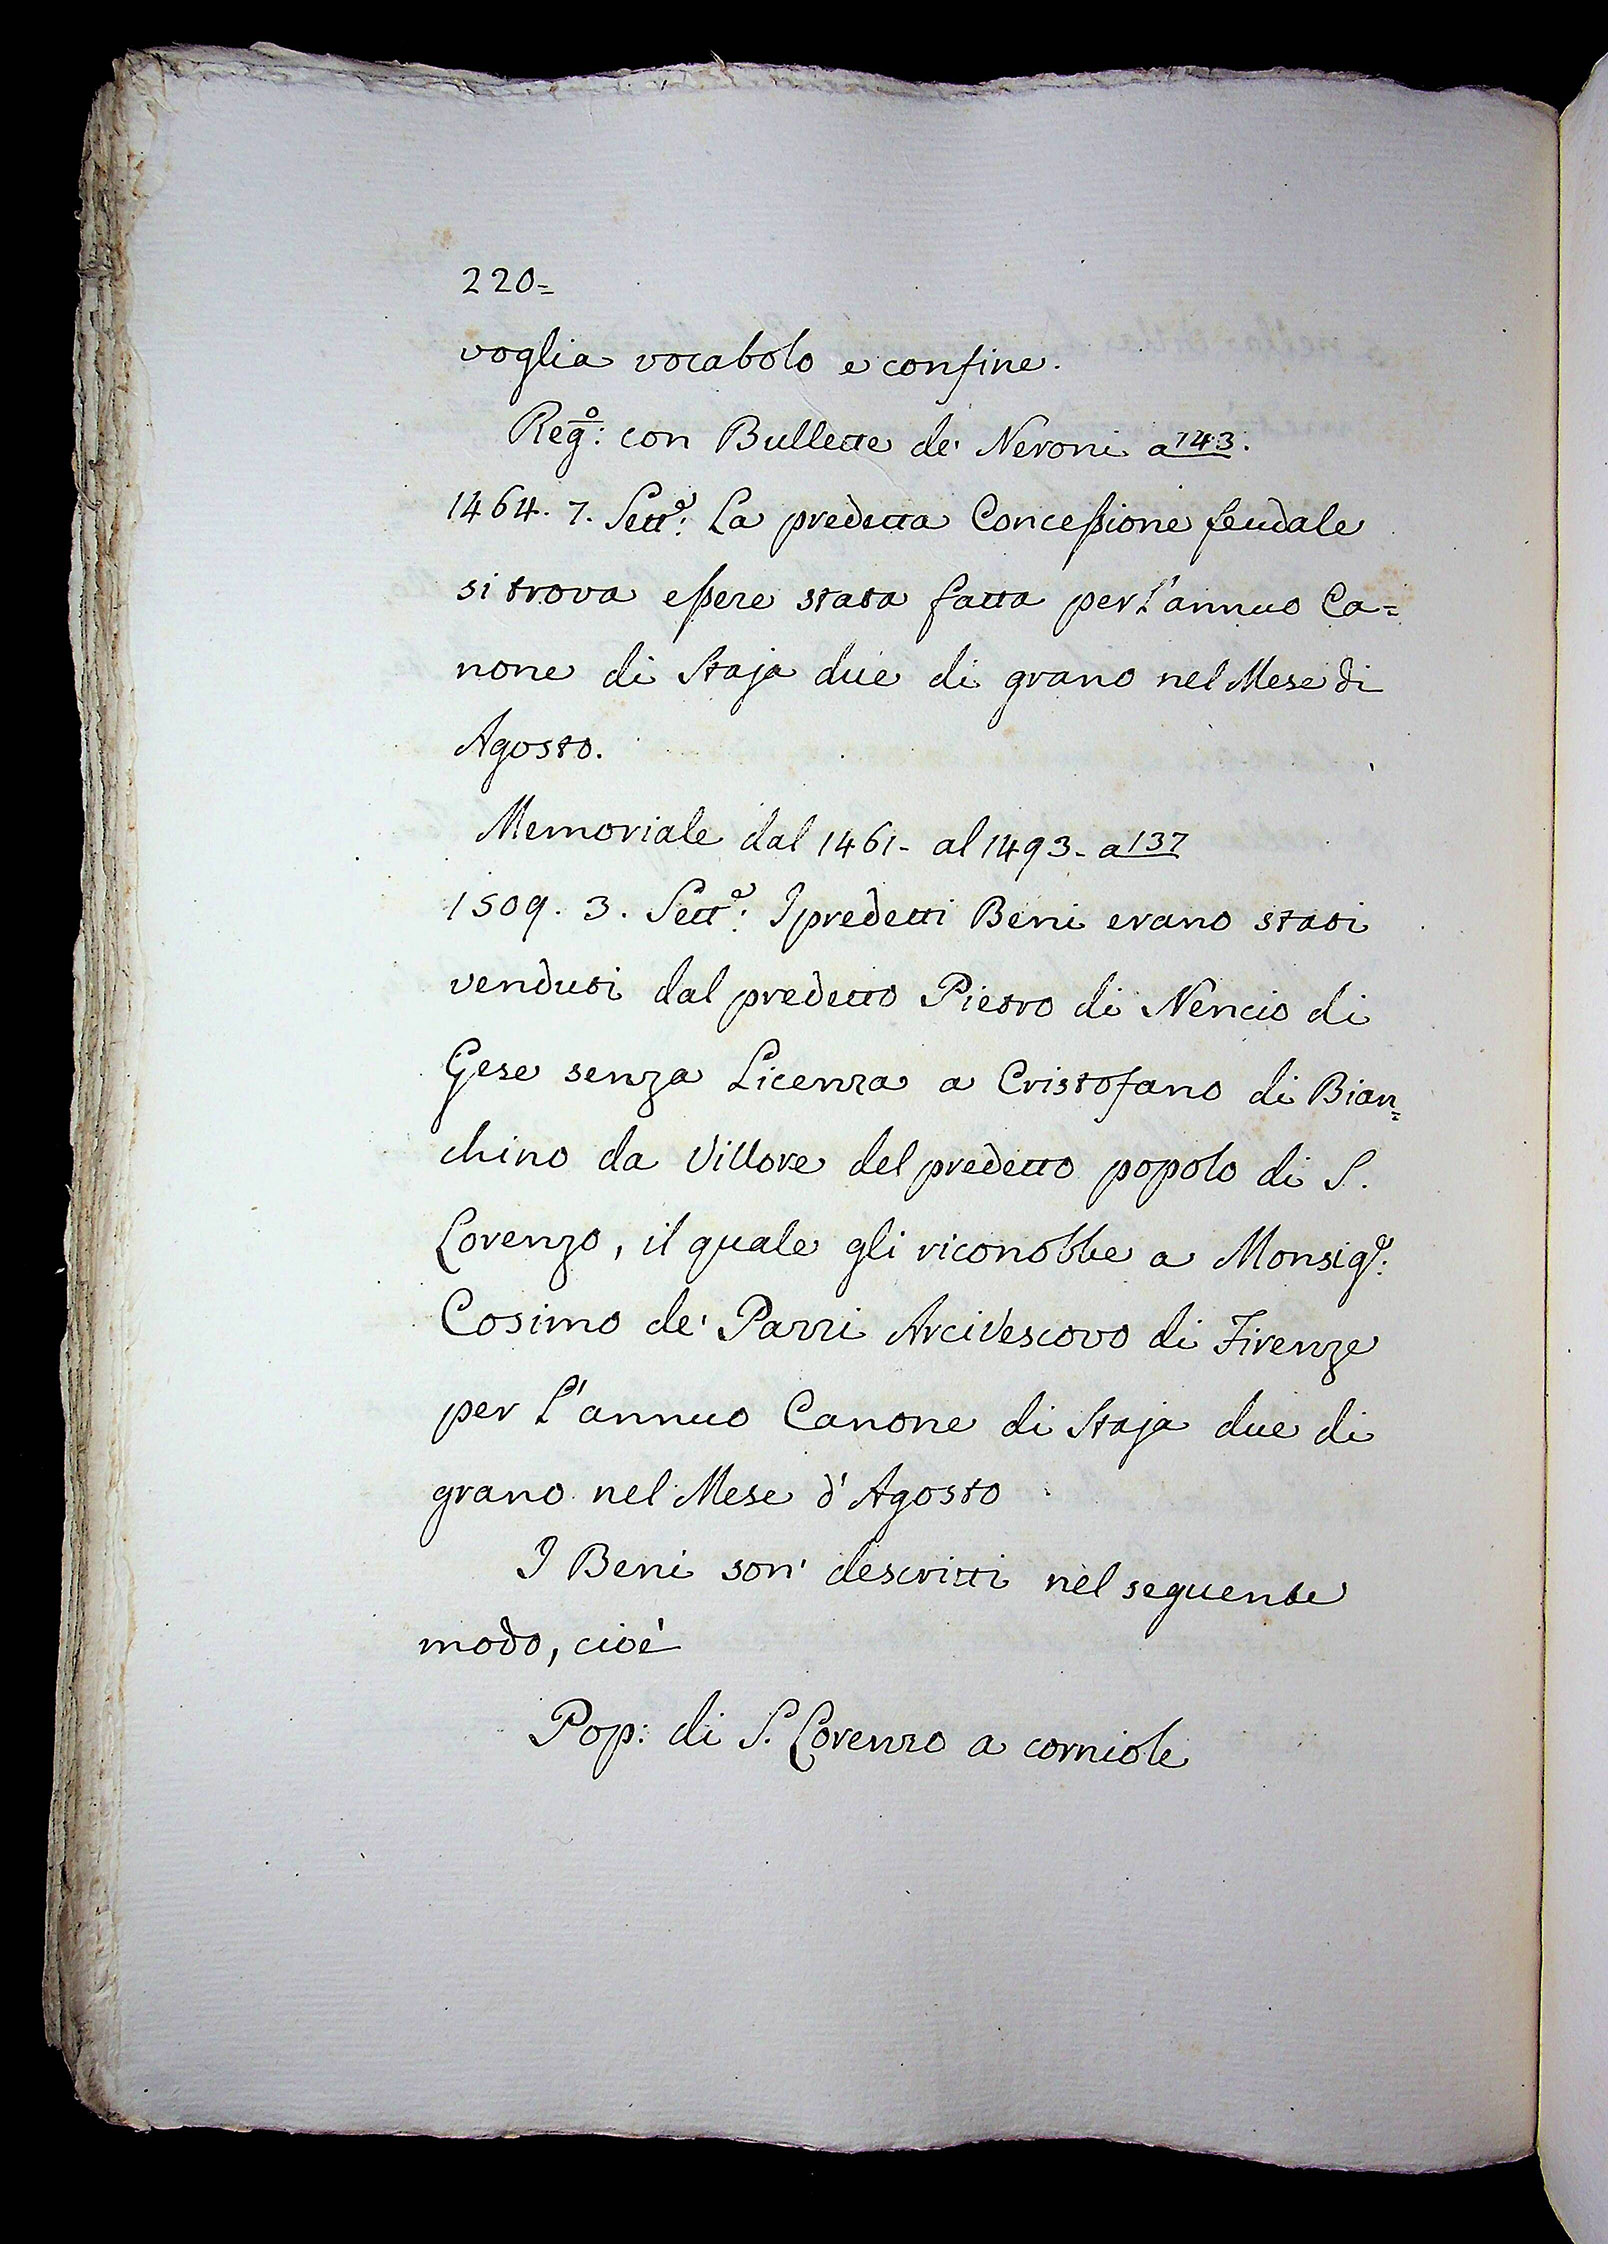 220=
voglia vocabolo e confine.
Reg.º: con Bullette de' Neroni a 143.
1464. 7. Sett.e: La predetta Concessione feudale
si trova essere stata fatta per l'annuo Ca=
none di Staja due di grano nel Mese di
Agosto.
Memoriale dal 1461- al 1493- a 137
1509. 3. Sett.e: I predetti Beni erano stati
venduti dal predetto Pietro di Nencio di
Gese senza Licenza a Cristofano di Bian=
chino da Villore del predetto popolo di S.
Lorenzo, il quale gli riconobbe a Monsig.r:
Cosimo de' Pazzi Arcivescovo di Firenze
per l'annuo Canone di Staja due di
grano nel Mese d'Agosto
I Beni son' descritti nel seguente
modo, cioè
Pop: di S. Lorenzo a corniole